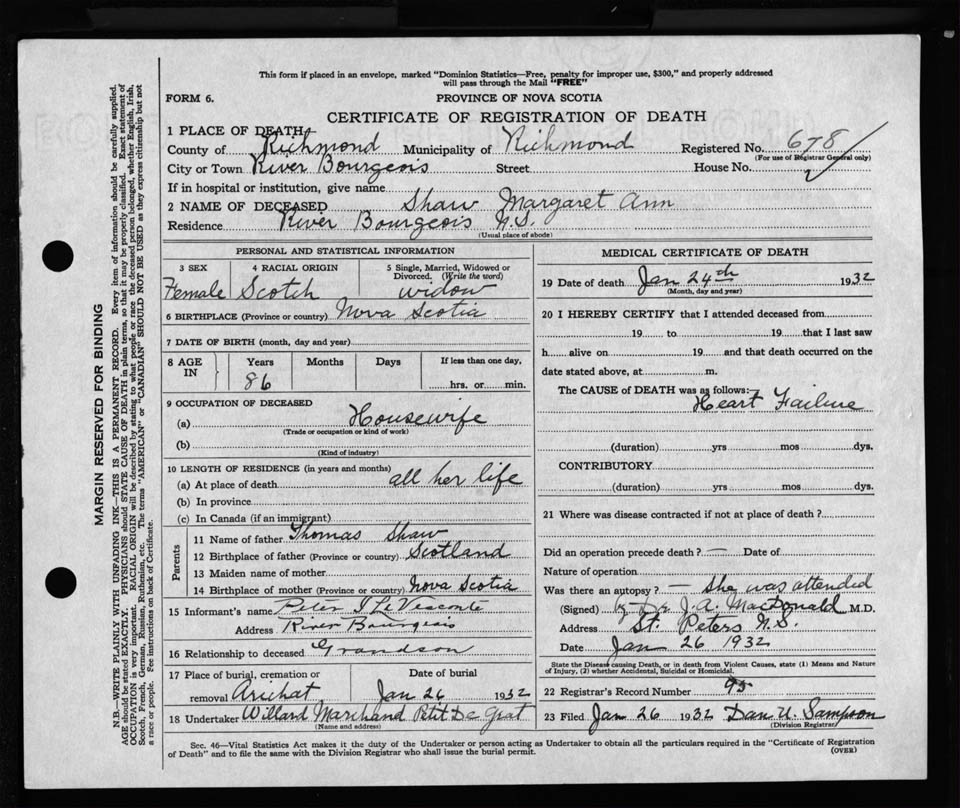 This form if placed in an envelope, marked "Dominion Statistics—Free, penalty for improper use, $300," and properly addressed
will pass through the Mail "FREE"
FORM 6.
PROVINCE OF NOVA SCOTIA
CERTIFICATE OF REGISTRATION OF DEATH
1 PLACE OF DEATH
County of Richmond Municipality of Richmond Registered No. 678
(For use of Registrar General only)
City or Town River Bourgeois Street House No.
If in hospital or institution, give name
2 NAME OF DECEASED Shaw Margaret Ann
Residence River Bourgeois N.S.
(Usual place of abode)
PERSONAL AND STATISTICAL INFORMATION
3 SEX Female
4 RACIAL ORIGIN Scotch
5 Single, Married, Widowed or Divorced. (Write the word) widow
6 BIRTHPLACE (Province or country) Nova Scotia
7 DATE OF BIRTH (month, day and year)
8 AGE IN Years Months Days If less than one day,
86 hrs. or min.
9 OCCUPATION OF DECEASED
(a) Housewife
(Trade or occupation or kind of work)
(b)
(Kind of industry)
10 LENGTH OF RESIDENCE (in years and months)
(a) At place of death all her life
(b) In province
(c) In Canada (if an immigrant)
Parents
11 Name of father Thomas Shaw
12 Birthplace of father (Province or country) Scotland
13 Maiden name of mother
14 Birthplace of mother (Province or country) Nova Scotia
15 Informant's name Peter J LeVesconte
Address River Bourgeois
16 Relationship to deceased Grandson
17 Place of burial, cremation or Date of burial
removal Arichat Jan 26 1932
18 Undertaker Willard Marchand Petit De Grat
(Name and address)
MEDICAL CERTIFICATE OF DEATH
19 Date of death Jan 24th 1932
(Month, day and year)
20 I HEREBY CERTIFY that I attended deceased from
19 to 19 that I last saw
h alive on 19 and that death occurred on the
date stated above, at m.
The CAUSE of DEATH was as follows:
Heart Failure
(duration) yrs mos dys.
CONTRIBUTORY
(duration) yrs mos dys.
21 Where was disease contracted if not at place of death?
Did an operation precede death? — Date of
Nature of operation
Was there an autopsy? — She was attended
(Signed) by Dr. J. A. MacDonald M.D.
Address St. Peters N.S.
Date Jan 26 1932
State the Disease causing Death, or in death from Violent Causes, state (1) Means and Nature
of Injury, (2) whether Accidental, Suicidal or Homicidal.
22 Registrar's Record Number 95
23 Filed Jan 26 1932 Dan U. Sampson
(Division Registrar)
Sec. 46—Vital Statistics Act makes it the duty of the Undertaker or person acting as Undertaker to obtain all the particulars required in the "Certificate of Registration
of Death" and to file the same with the Division Registrar who shall issue the burial permit.
(OVER)
MARGIN RESERVED FOR BINDING
N.B.—WRITE PLAINLY, WITH UNFADING INK—THIS IS A PERMANENT RECORD. Every item of information should be carefully supplied.
AGE should be stated EXACTLY. PHYSICIANS should STATE CAUSE OF DEATH in plain terms, so that it may be properly classified. Exact statement of
OCCUPATION is very important. RACIAL ORIGIN will be described by stating to what people or race the deceased person belonged, whether English, Irish,
Scotch, French, German, Russian, Ruthenian, etc. The terms "AMERICAN" or "CANADIAN" SHOULD NOT BE USED as they express citizenship but not
a race or people. Fee instructions on back of Certificate.